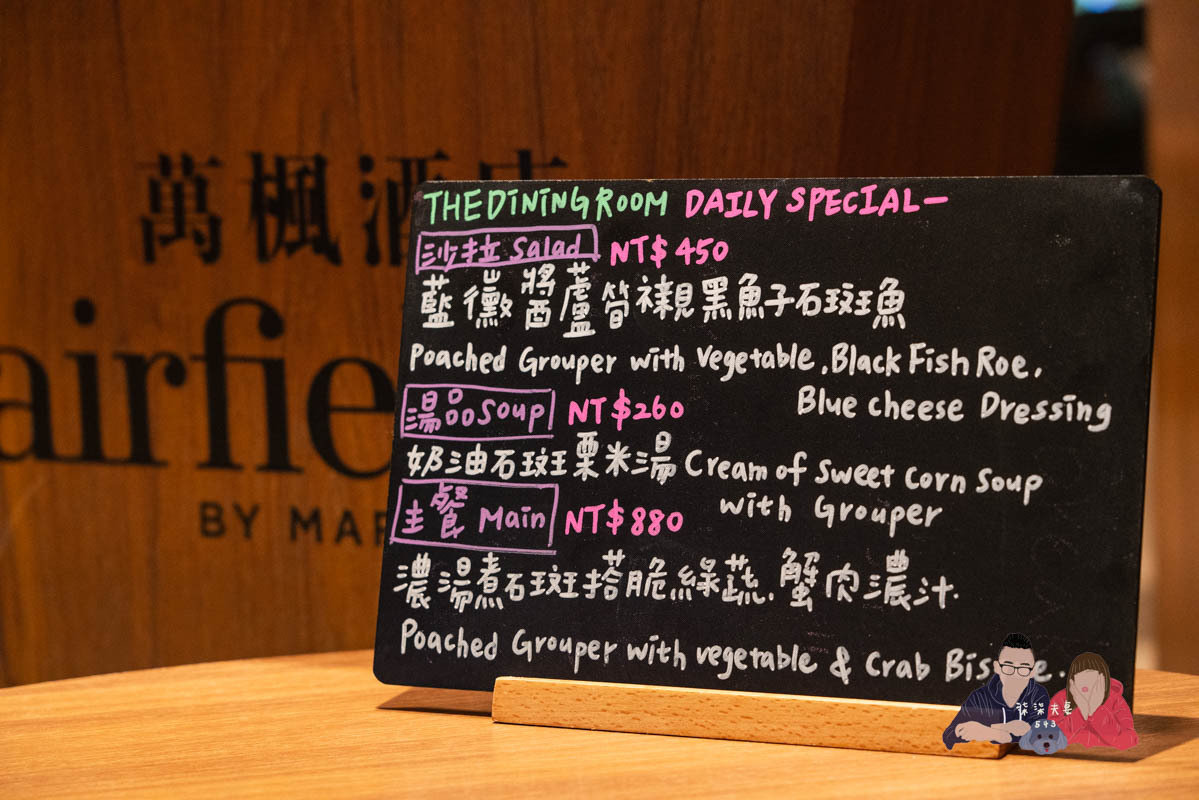 萬楓酒店
airfie
BY MAR
THE DINING ROOM DAILY SPECIAL—
沙拉 Salad NT$450
藍黴醬蘆筍襯黑魚子石斑魚
Poached Grouper with Vegetable, Black Fish Roe,
Blue cheese Dressing
湯品 Soup NT$260
奶油石斑粟米湯 Cream of sweet corn soup
with Grouper
主餐 Main NT$880
濃湯煮石斑搭脆綠蔬.蟹肉濃汁.
Poached Grouper with vegetable & Crab Bis e.
柒柒夫妻
543